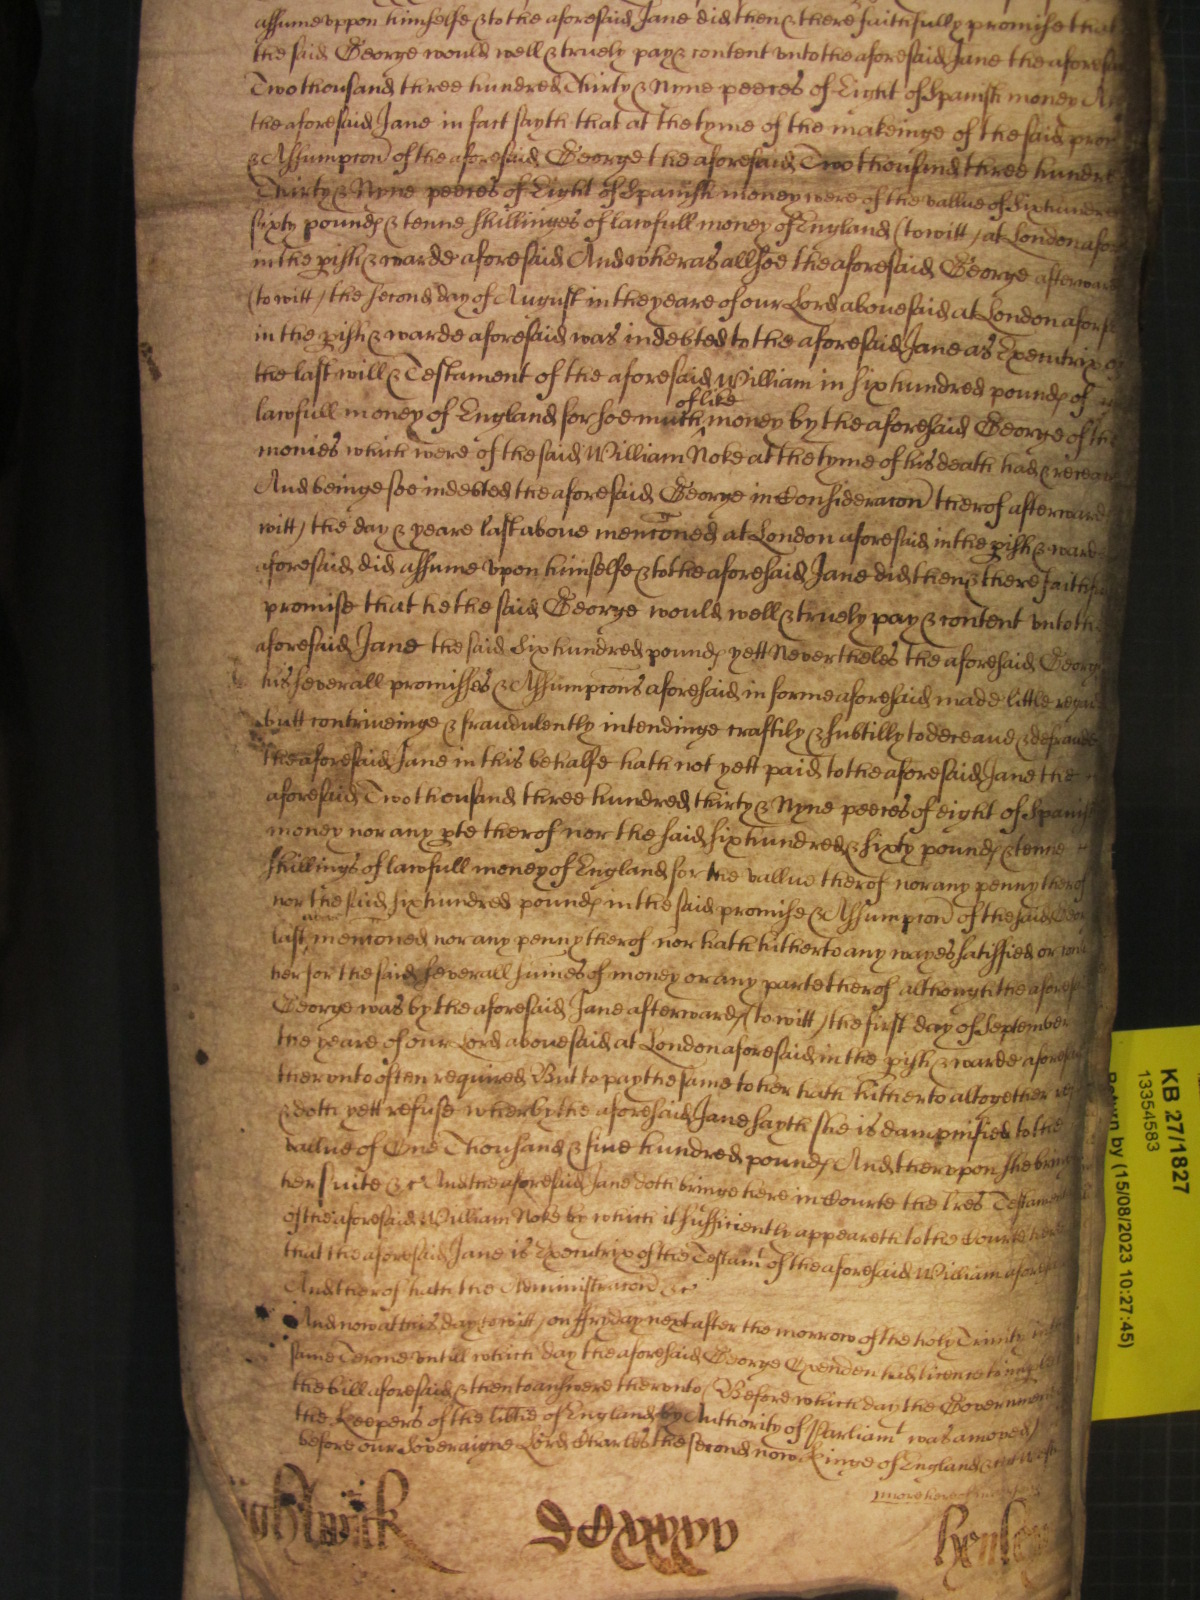 assume uppon himselfe & to the aforesaid Jane did then & there faithfully promise that
the said George would well & truely pay & content unto the aforesaid Jane the aforesa
Two thousand three hundred Thirty & Nyne peeces of Eight of Spanish money An
the aforesaid Jane in fact sayth that at the tyme of the makeinge of the said pro
& Assumpcon of the aforesaid George the aforesaid Two thousand three hundre
Thirty & Nyne peeces of Eight of Spanish money were of the vallue of Six hundre
sixty pounds & tenne shillinges of lawfull money of England (to witt) at London afor
in the pish & warde aforesaid And wheras allsoe the aforesaid George afterward
(to witt) the second day of August in the yeare of our Lord abovesaid at London afores
in the pish & warde aforesaid was indebted to the aforesaid Jane as Executrix of
the last will & Testament of the aforesaid William in six hundred pounds of
lawfull money of England for soe much of like money by the aforesaid George of the
monies which were of the said William Noke at the tyme of his death had & receav
And beinge soe indebted the aforesaid George in Consideracon therof afterward
witt) the day & yeare last above mencioned at London aforesaid in the pish & ward
aforesaid did assume upon himselfe & to the aforesaid Jane did then & there faithfu
promise that he the said George would well & truely pay & content unto the
aforesaid Jane the said Six hundred pounds yett Nevertheles the aforesaid George
his severall promisses & Assumpcons aforesaid in forme aforesaid made little regar
butt contriveinge & fraudulently intendinge craftily & subtilly to deceave & defraude
the aforesaid Jane in this behalfe hath not yett paid to the aforesaid Jane the
aforesaid Two thousand three hundred thirty & Nyne peeces of eight of Spanish
money nor any pte therof nor the said six hundred & sixty pounds & tenne
shillings of lawfull money of England for the vallue therof nor any penny therof
nor the said six hundred pounds in the said promise & Assumpcon of the said Geor
last above mencioned nor any penny therof nor hath hitherto any wayes satisfied or con
her for the said severall sumes of money or any parte therof although the aforesa
George was by the aforesaid Jane afterwards (to witt) the first day of September
the yeare of our Lord abovesaid at London aforesaid in the pish & warde aforesaid
therunto often required But to pay the same to her hath hitherto altogether re
& doth yett refuse wherby the aforesaid Jane sayth she is dampnified to the
vallue of One Thousand & five hundred pounds And therupon she bring
her suite &c And the aforesaid Jane doth bringe here in Courte the Lres Testament
of the aforesaid William Noke by which it sufficiently appeareth to the Courte here
that the aforesaid Jane is Executrix of the Testamt of the aforesaid William aforesa
And therof hath the Administracon &c
And now att this day (to witt) on ffryday next after the morrow of the holy Trinity in t
same Terme untill which day the aforesaid George Oxenden had licence to imp
the bill aforesaid & then to answere therunto (Before which day the Government
the Keepers of the libtie of England by Authority of Parliamt was amoved)
before our Soveraigne Lord Charles the second now Kinge of England &c att West
KB 27/1827
13354583
Return by (15/08/2023 10:27:45)